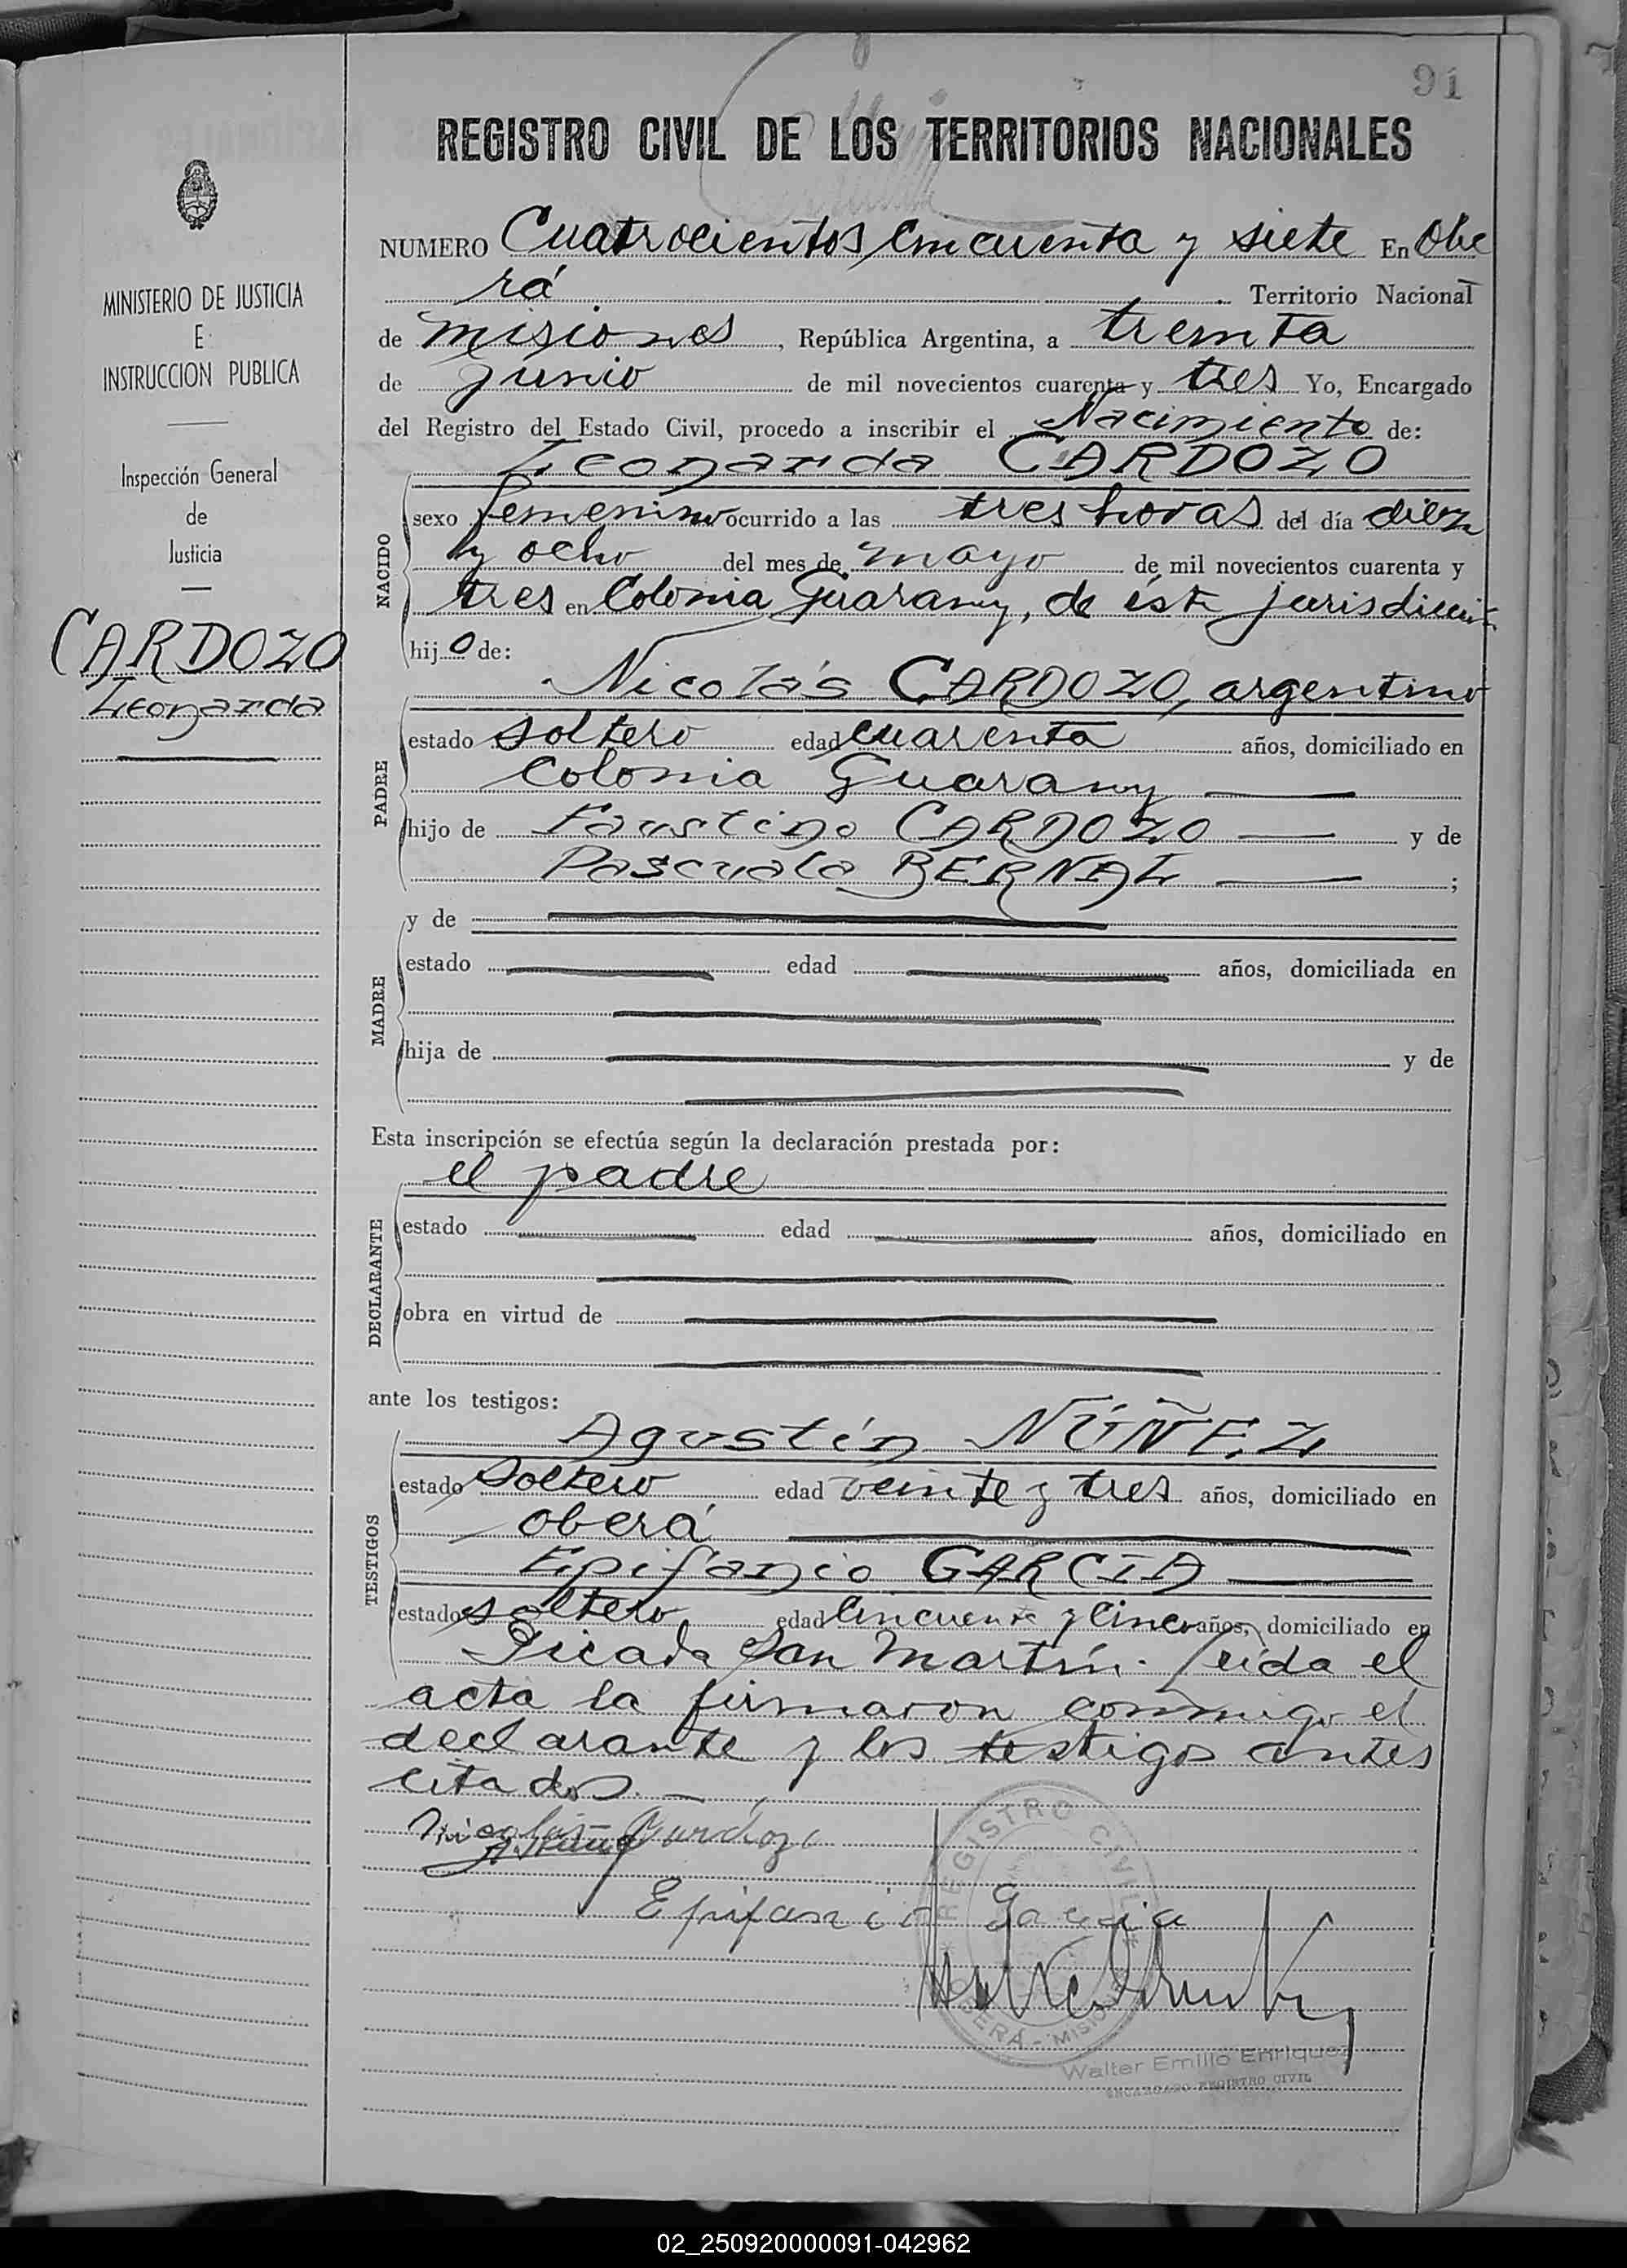 91
REGISTRO CIVIL DE LOS TERRITORIOS NACIONALES
MINISTERIO DE JUSTICIA
E
INSTRUCCION PUBLICA
Inspección General
de
Justicia
CARDOZO
Leonarda
NUMERO Cuatrocientos cincuenta y siete En Obe
rá Territorio Nacional
de misiones, República Argentina, a treinta
de junio de mil novecientos cuarenta y tres Yo, Encargado
del Registro del Estado Civil, procedo a inscribir el Nacimiento de:
Leonarda CARDOZO
NACIDO
sexo femenino ocurrido a las tres horas del día diez
y ocho del mes de mayo de mil novecientos cuarenta y
tres en Colonia Guarany, de ésta jurisdicción
hijo de:
Nicolás CARDOZO, argentino
PADRE
estado soltero edad cuarenta años, domiciliado en
colonia Guarany
hijo de Faustino CARDOZO y de
Pascuala BERNAL ;
MADRE
y de
estado edad años, domiciliada en
hija de y de
Esta inscripción se efectúa según la declaración prestada por:
el padre
DECLARANTE
estado edad años, domiciliado en
obra en virtud de
ante los testigos:
Agustín NÚÑEZ
TESTIGOS
estado soltero edad veinte y tres años, domiciliado en
oberá
Epifanio GARCIA
estado soltero edad cincuenta y cinco años, domiciliado en
Picada San Martín. Leida el
acta la firmaron conmigo el
declarante y los testigos antes
citados.
Nicolás Cardozo
Epifanio Garcia
REGISTRO CIVIL
OBERÁ - MISIONES
Walter Emilio Enriquez
ENCARGADO REGISTRO CIVIL
02_250920000091-042962